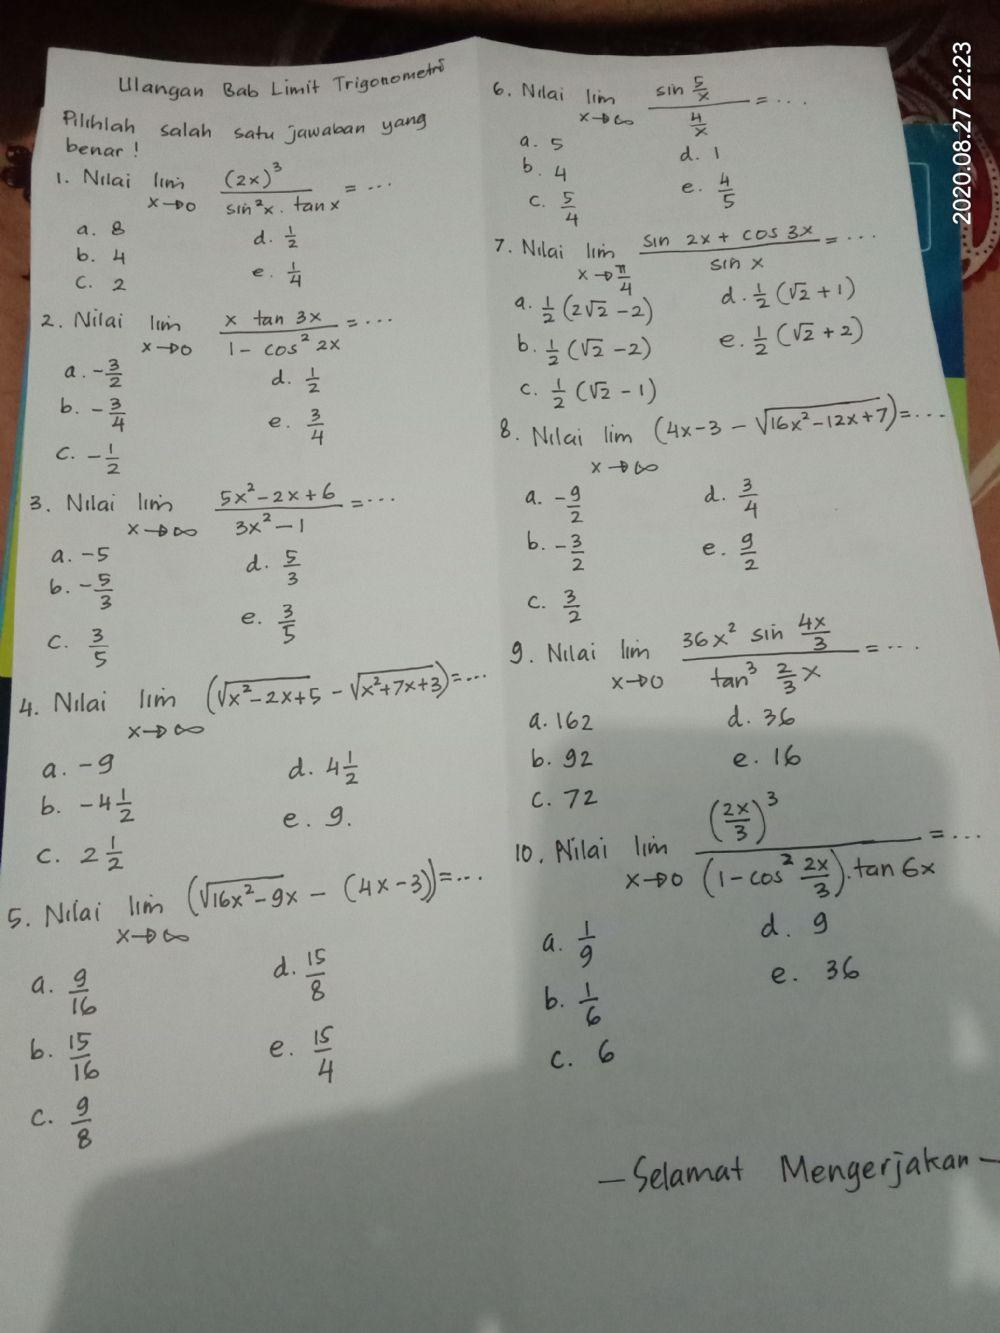 Ulangan Bab Limit Trigonometri
Pilihlah salah satu jawaban yang
benar!
1. Nilai lim x→0 (2x)³ / sin²x . tan x = ...
a. 8
b. 4
c. 2
d. 1/2
e. 1/4
2. Nilai lim x→0 x tan 3x / 1 - cos² 2x = ...
a. -3/2
b. -3/4
c. -1/2
d. 1/2
e. 3/4
3. Nilai lim x→∞ 5x²-2x+6 / 3x²-1 = ...
a. -5
b. -5/3
c. 3/5
d. 5/3
e. 3/5
4. Nilai lim x→∞ (√x²-2x+5 - √x²+7x+3) = ...
a. -9
b. -4 1/2
c. 2 1/2
d. 4 1/2
e. 9.
5. Nilai lim x→∞ (√16x²-9x - (4x-3)) = ...
a. 9/16
b. 15/16
c. 9/8
d. 15/8
e. 15/4
6. Nilai lim x→∞ sin 5/x / 4/x = ...
a. 5
b. 4
c. 5/4
d. 1
e. 4/5
7. Nilai lim x→π/4 sin 2x + cos 3x / sin x = ...
a. 1/2 (2√2 - 2)
b. 1/2 (√2 - 2)
c. 1/2 (√2 - 1)
d. 1/2 (√2 + 1)
e. 1/2 (√2 + 2)
8. Nilai lim x→∞ (4x-3 - √16x²-12x+7) = ...
a. -9/2
b. -3/2
c. 3/2
d. 3/4
e. 9/2
9. Nilai lim x→0 36x² sin 4x/3 / tan³ 2/3 x = ...
a. 162
b. 92
c. 72
d. 36
e. 16
10. Nilai lim x→0 (2x/3)³ / (1-cos² 2x/3).tan 6x = ...
a. 1/9
b. 1/6
c. 6
d. 9
e. 36
- Selamat Mengerjakan -
2020.08.27 22:23